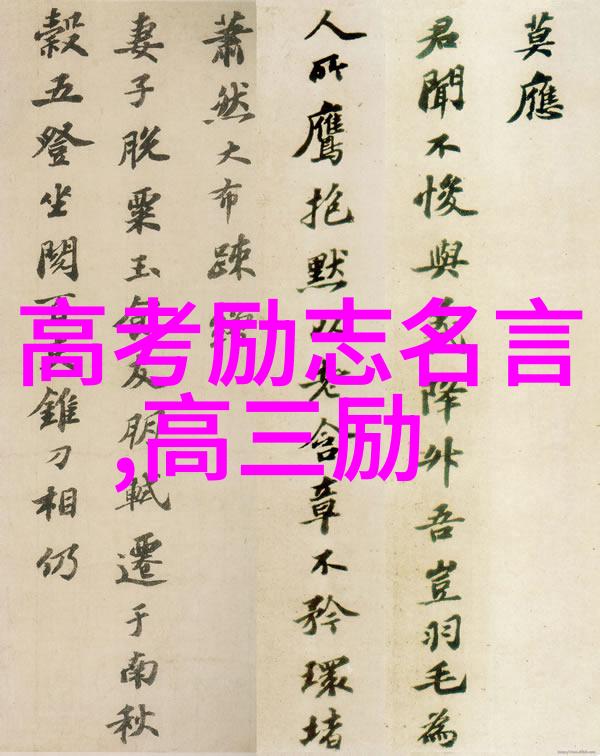 莫應
君聞不悛與降外吾豈羽毛為
人所鷹抱默以老含章不矜環堵
蕭然大布疎
妻子脫粟玉友朋軾遷于南秋
穀五登坐閱百錐刀相仍
高考励志名言
,高三励